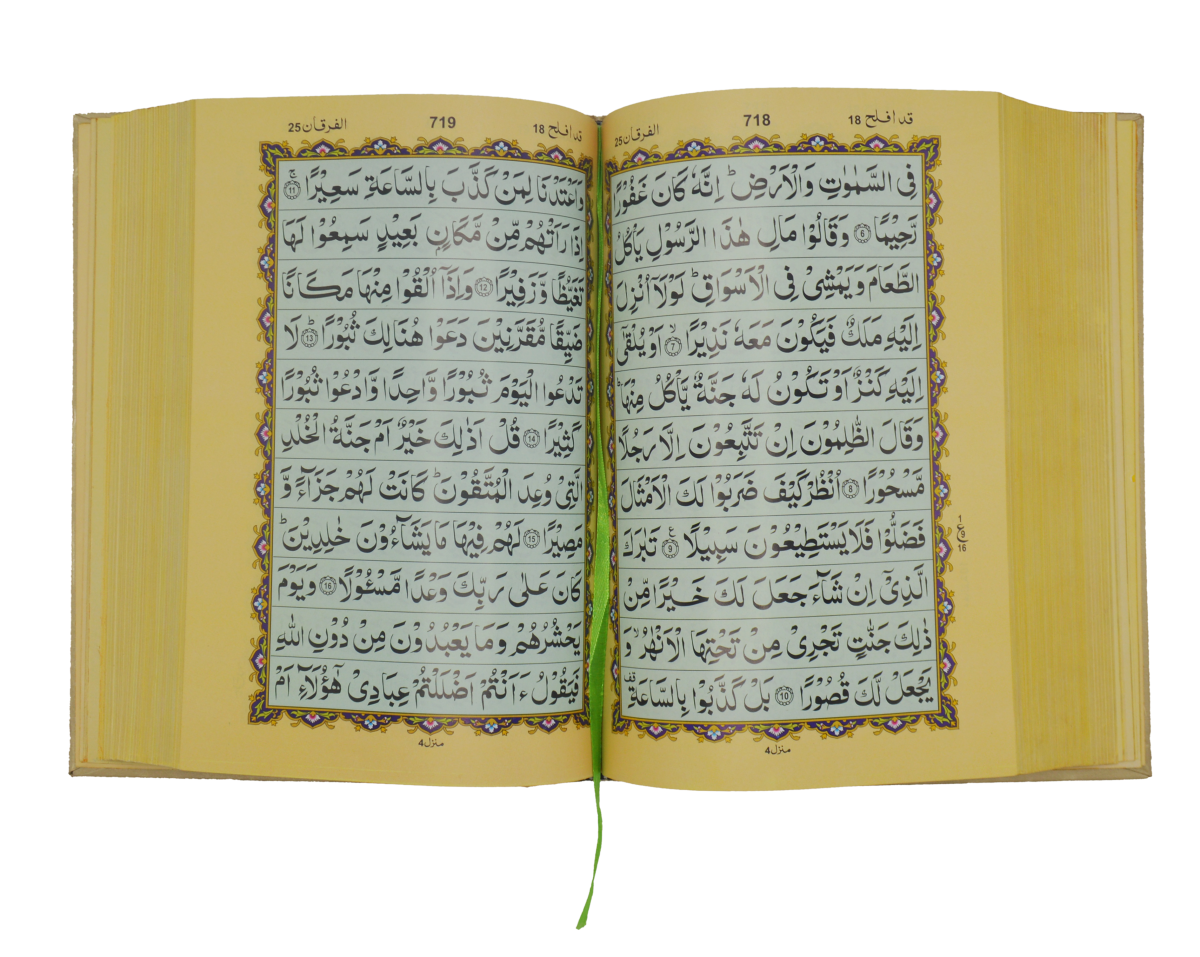 قد افلح 18
718
الفرقان 25
فِى السَّمٰوٰتِ وَالْاَرْضِ ؕ اِنَّهٗ كَانَ غَفُوْرًا
رَّحِيْمًا ۝6 وَقَالُوْا مَالِ هٰذَا الرَّسُوْلِ يَاْكُلُ
الطَّعَامَ وَيَمْشِىْ فِى الْاَسْوَاقِ ؕ لَوْلَاۤ اُنْزِلَ
اِلَيْهِ مَلَكٌ فَيَكُوْنَ مَعَهٗ نَذِيْرًا ۙ۝7 اَوْ يُلْقٰٓى
اِلَيْهِ كَنْزٌ اَوْ تَكُوْنُ لَهٗ جَنَّةٌ يَّاْكُلُ مِنْهَا ؕ
وَقَالَ الظّٰلِمُوْنَ اِنْ تَتَّبِعُوْنَ اِلَّا رَجُلًا
مَّسْحُوْرًا ۝8 اُنْظُرْ كَيْفَ ضَرَبُوْا لَكَ الْاَمْثَالَ
فَضَلُّوْا فَلَا يَسْتَطِيْعُوْنَ سَبِيْلًا ۝9 ع تَبٰرَكَ
الَّذِىْۤ اِنْ شَآءَ جَعَلَ لَكَ خَيْرًا مِّنْ
ذٰلِكَ جَنّٰتٍ تَجْرِىْ مِنْ تَحْتِهَا الْاَنْهٰرُ ۙ وَ
يَجْعَلْ لَّكَ قُصُوْرًا ۝10 بَلْ كَذَّبُوْا بِالسَّاعَةِ قف
1
ع
9
16
منزل 4
قد افلح 18
719
الفرقان 25
وَاَعْتَدْنَا لِمَنْ كَذَّبَ بِالسَّاعَةِ سَعِيْرًا ۚ۝11
اِذَا رَاَتْهُمْ مِّنْ مَّكَانٍۭ بَعِيْدٍ سَمِعُوْا لَهَا
تَغَيُّظًا وَّزَفِيْرًا ۝12 وَاِذَاۤ اُلْقُوْا مِنْهَا مَكَانًا
ضَيِّقًا مُّقَرَّنِيْنَ دَعَوْا هُنَالِكَ ثُبُوْرًا ؕ۝13 لَا
تَدْعُوا الْيَوْمَ ثُبُوْرًا وَّاحِدًا وَّادْعُوْا ثُبُوْرًا
كَثِيْرًا ۝14 قُلْ اَذٰلِكَ خَيْرٌ اَمْ جَنَّةُ الْخُلْدِ
الَّتِىْ وُعِدَ الْمُتَّقُوْنَ ؕ كَانَتْ لَهُمْ جَزَآءً وَّ
مَصِيْرًا ۝15 لَهُمْ فِيْهَا مَا يَشَآءُوْنَ خٰلِدِيْنَ ؕ
كَانَ عَلٰى رَبِّكَ وَعْدًا مَّسْـُٔوْلًا ۝16 وَيَوْمَ
يَحْشُرُهُمْ وَمَا يَعْبُدُوْنَ مِنْ دُوْنِ اللّٰهِ
فَيَقُوْلُ ءَاَنْتُمْ اَضْلَلْتُمْ عِبَادِىْ هٰٓؤُلَآءِ اَمْ
منزل 4